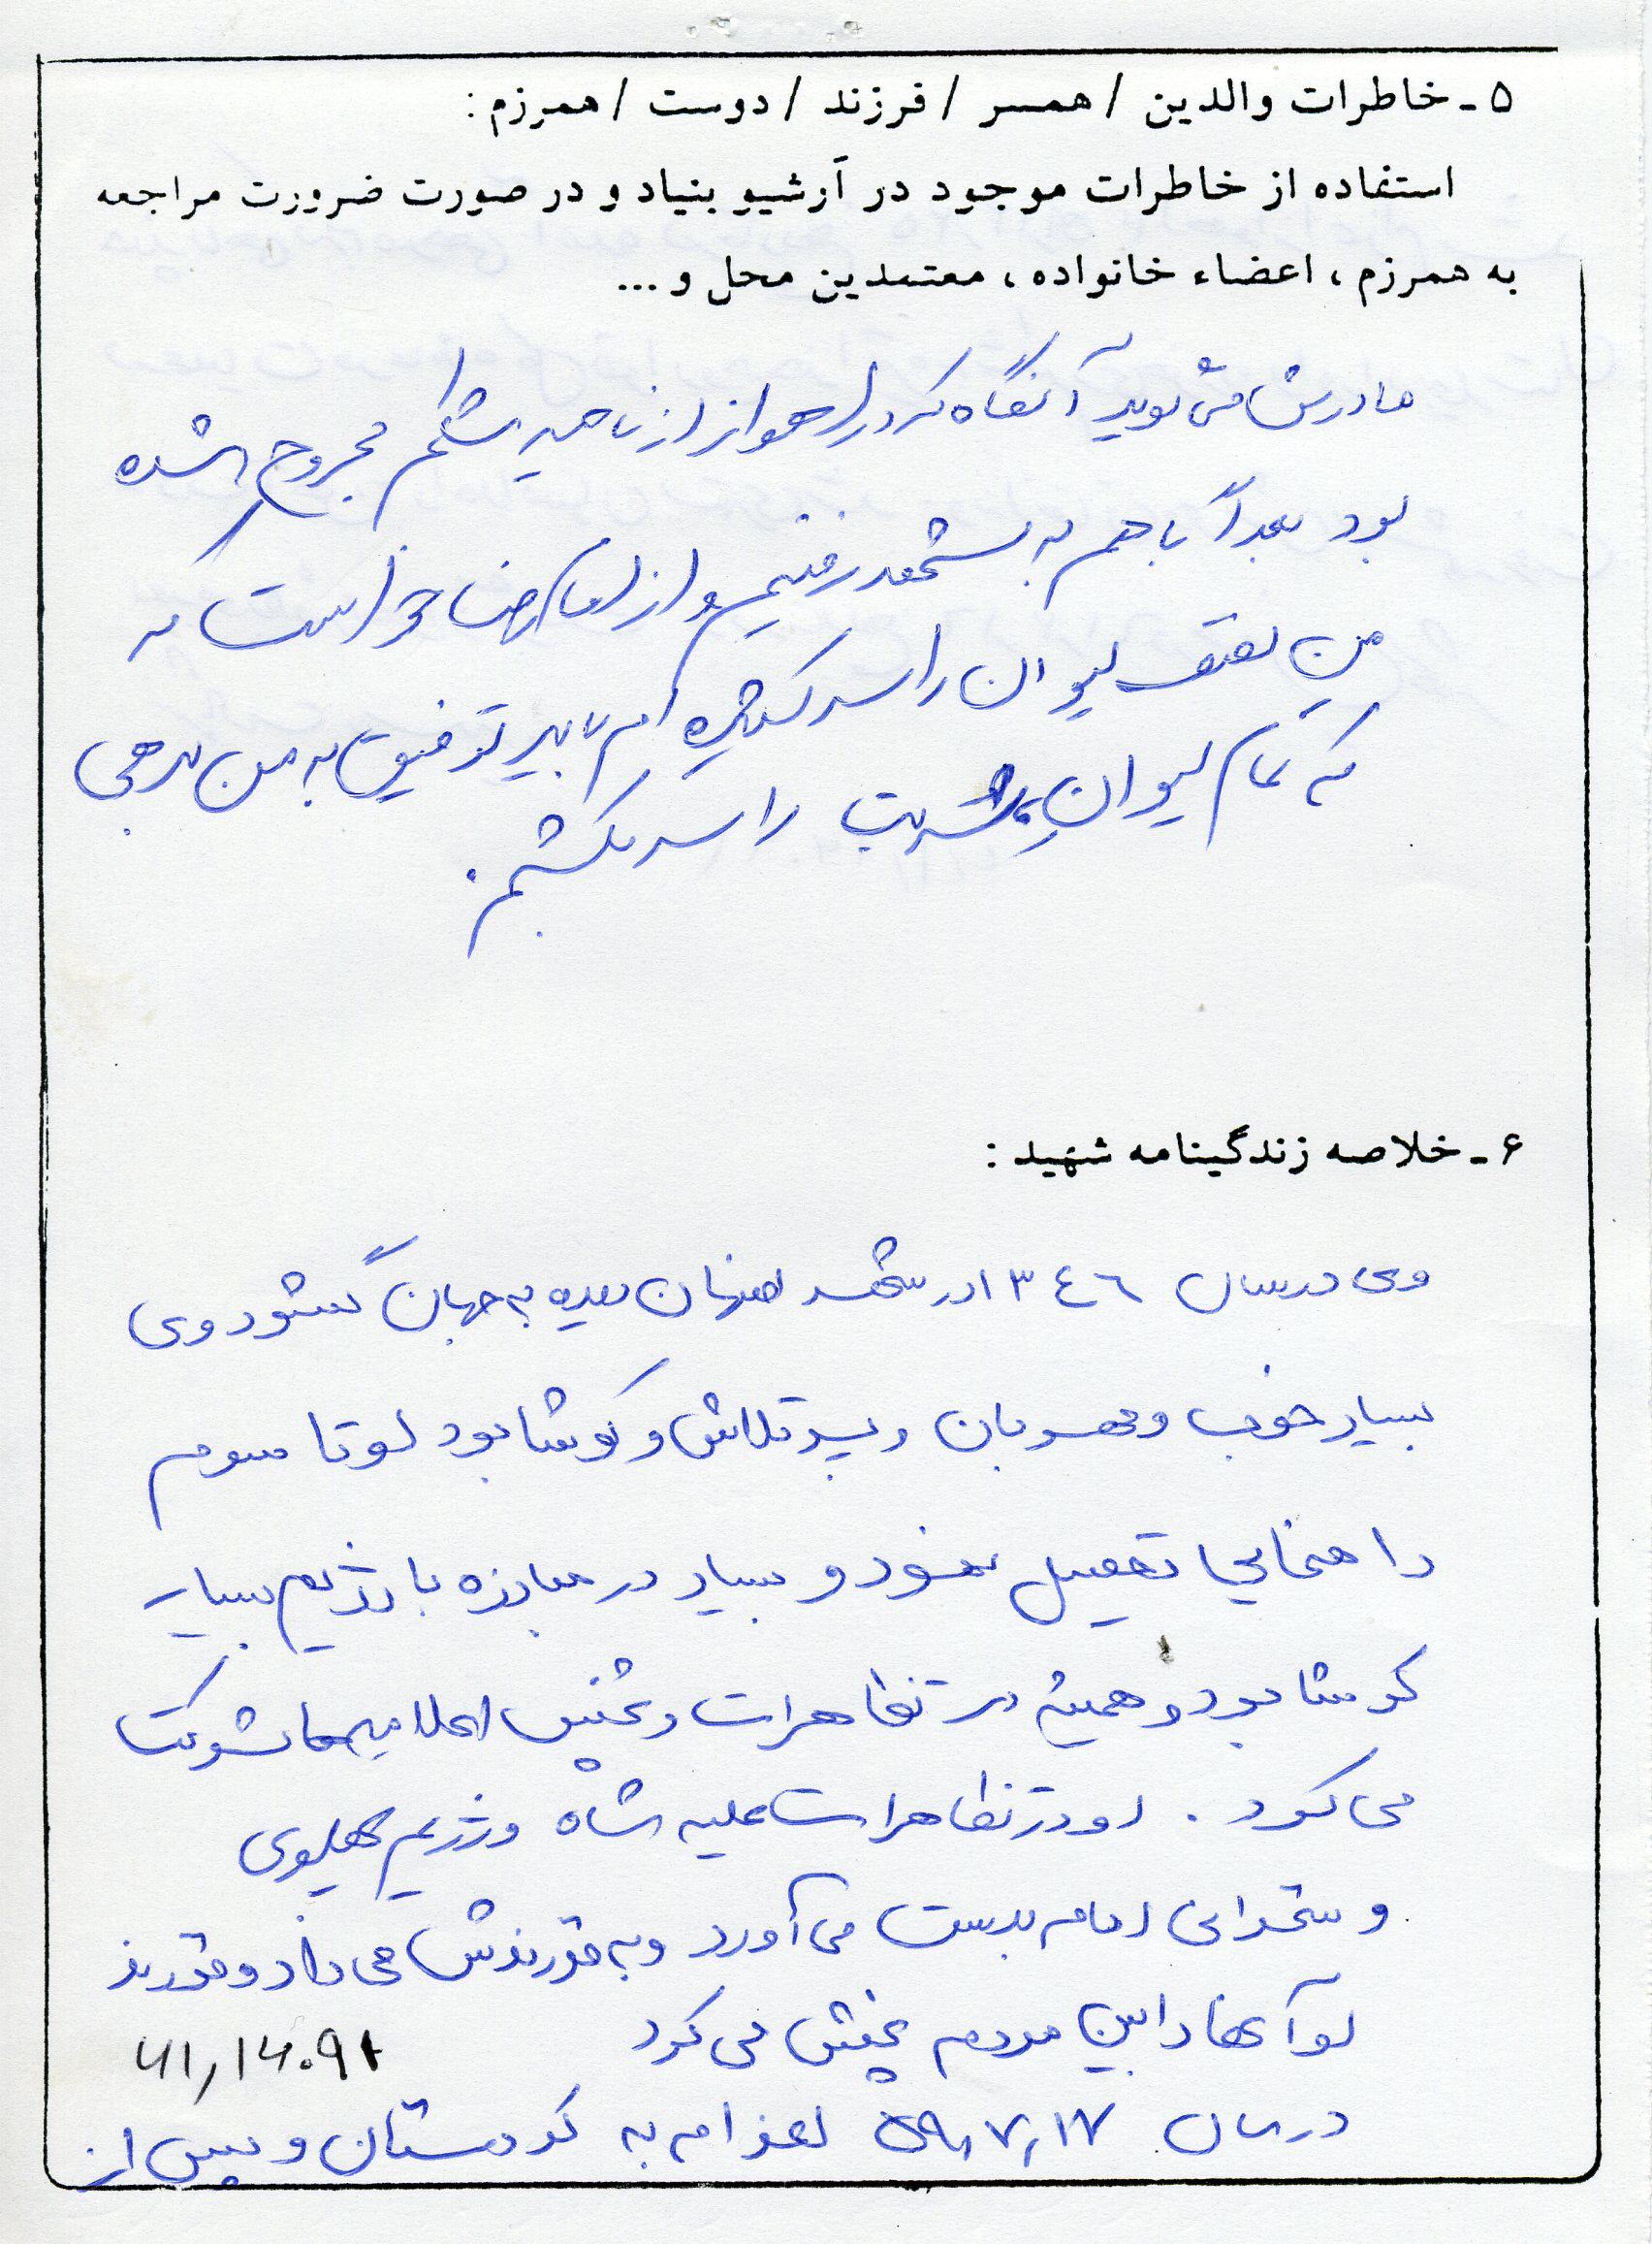 ۵ - خاطرات والدین / همسر / فرزند / دوست / همرزم :
استفاده از خاطرات موجود در آرشیو بنیاد و در صورت ضرورت مراجعه
به همرزم ، اعضاء خانواده ، معتمدین محل و ...
مادرش می گوید آنگاه که در اهواز از ناحیه شکم مجروح شده
بود بعداً با هم به مشهد رفتیم و از امام رضا خواست که
من نصف لیوان را سر کشیده ام باید توفیق به من بدهی
که تمام لیوان شربت را سر بکشم .
۶ - خلاصه زندگینامه شهید :
وی در سال ۱۳۴۶ در شهر اصفهان دیده به جهان گشود وی
بسیار خوب و مهربان و پر تلاش و کوشا بود او تا سوم
راهنمایی تحصیل نمود و بسیار در مبارزه با رژیم بسیار
کوشا بود و همیشه در تظاهرات و پخش اعلامیه ها شرکت
می کرد . او در تظاهرات علیه شاه و رژیم پهلوی
و سخنرانی امام بدست می آورد و به فرزندش می داد و فرزند
او آنها را بین مردم پخش می کرد
۶۱,۱۴۰۹۲
در سال ۵۹,۷,۱۷ اعزام به کردستان و پس از